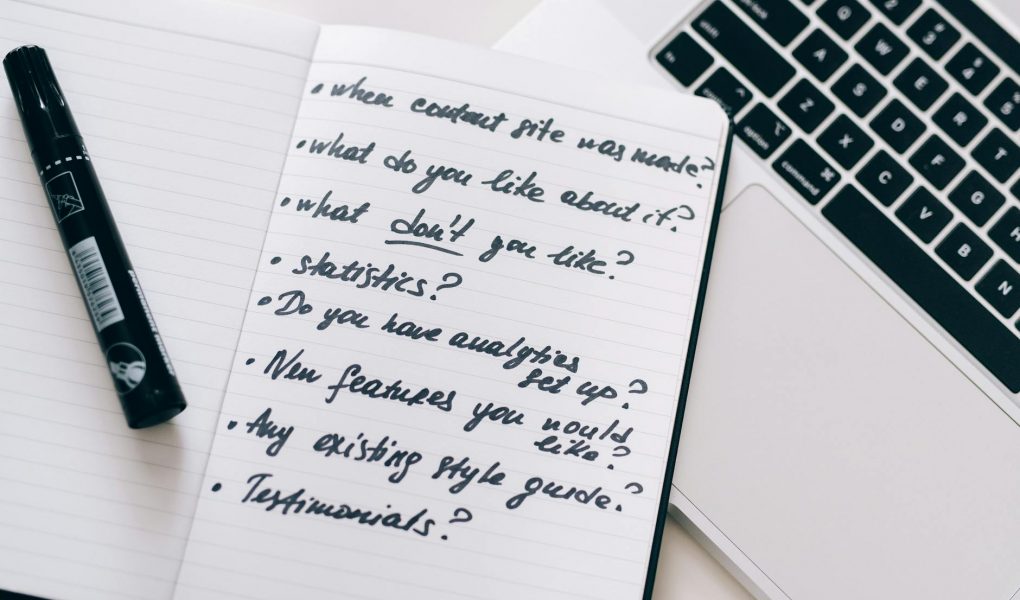 • when content site was made?
• what do you like about it?
• what don't you like?
• statistics?
• Do you have analytics
set up?
• New features you would
like?
• Any existing style guide?
• Testimonials?
Q W 2 3 4 5
shift A S E R T
fn Z X D F G H
control option command C V B N